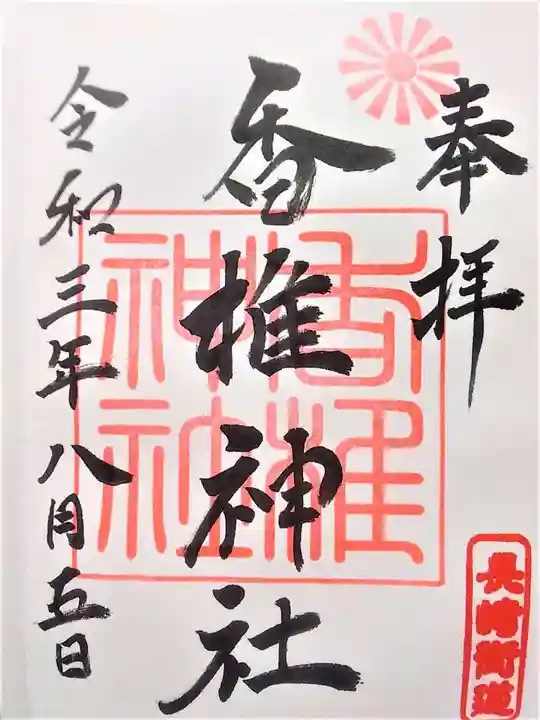 奉拝
香椎神社
令和三年八月五日
香椎
神社
長崎街道